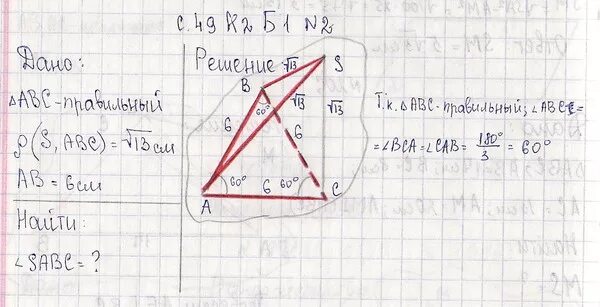 с.49 К2 Б1 №2
Дано:
△ABC-правильный
ρ(S, ABC)=√13 см
AB = 6 см
Найти:
∠SABC = ?
Решение
S
√13
B
60°
√13
√13
6
6
60°
6
60°
A
C
Т.к. △ABC-правильный; ∠ABC=
=∠BCA=∠CAB= 180°/3 = 60°